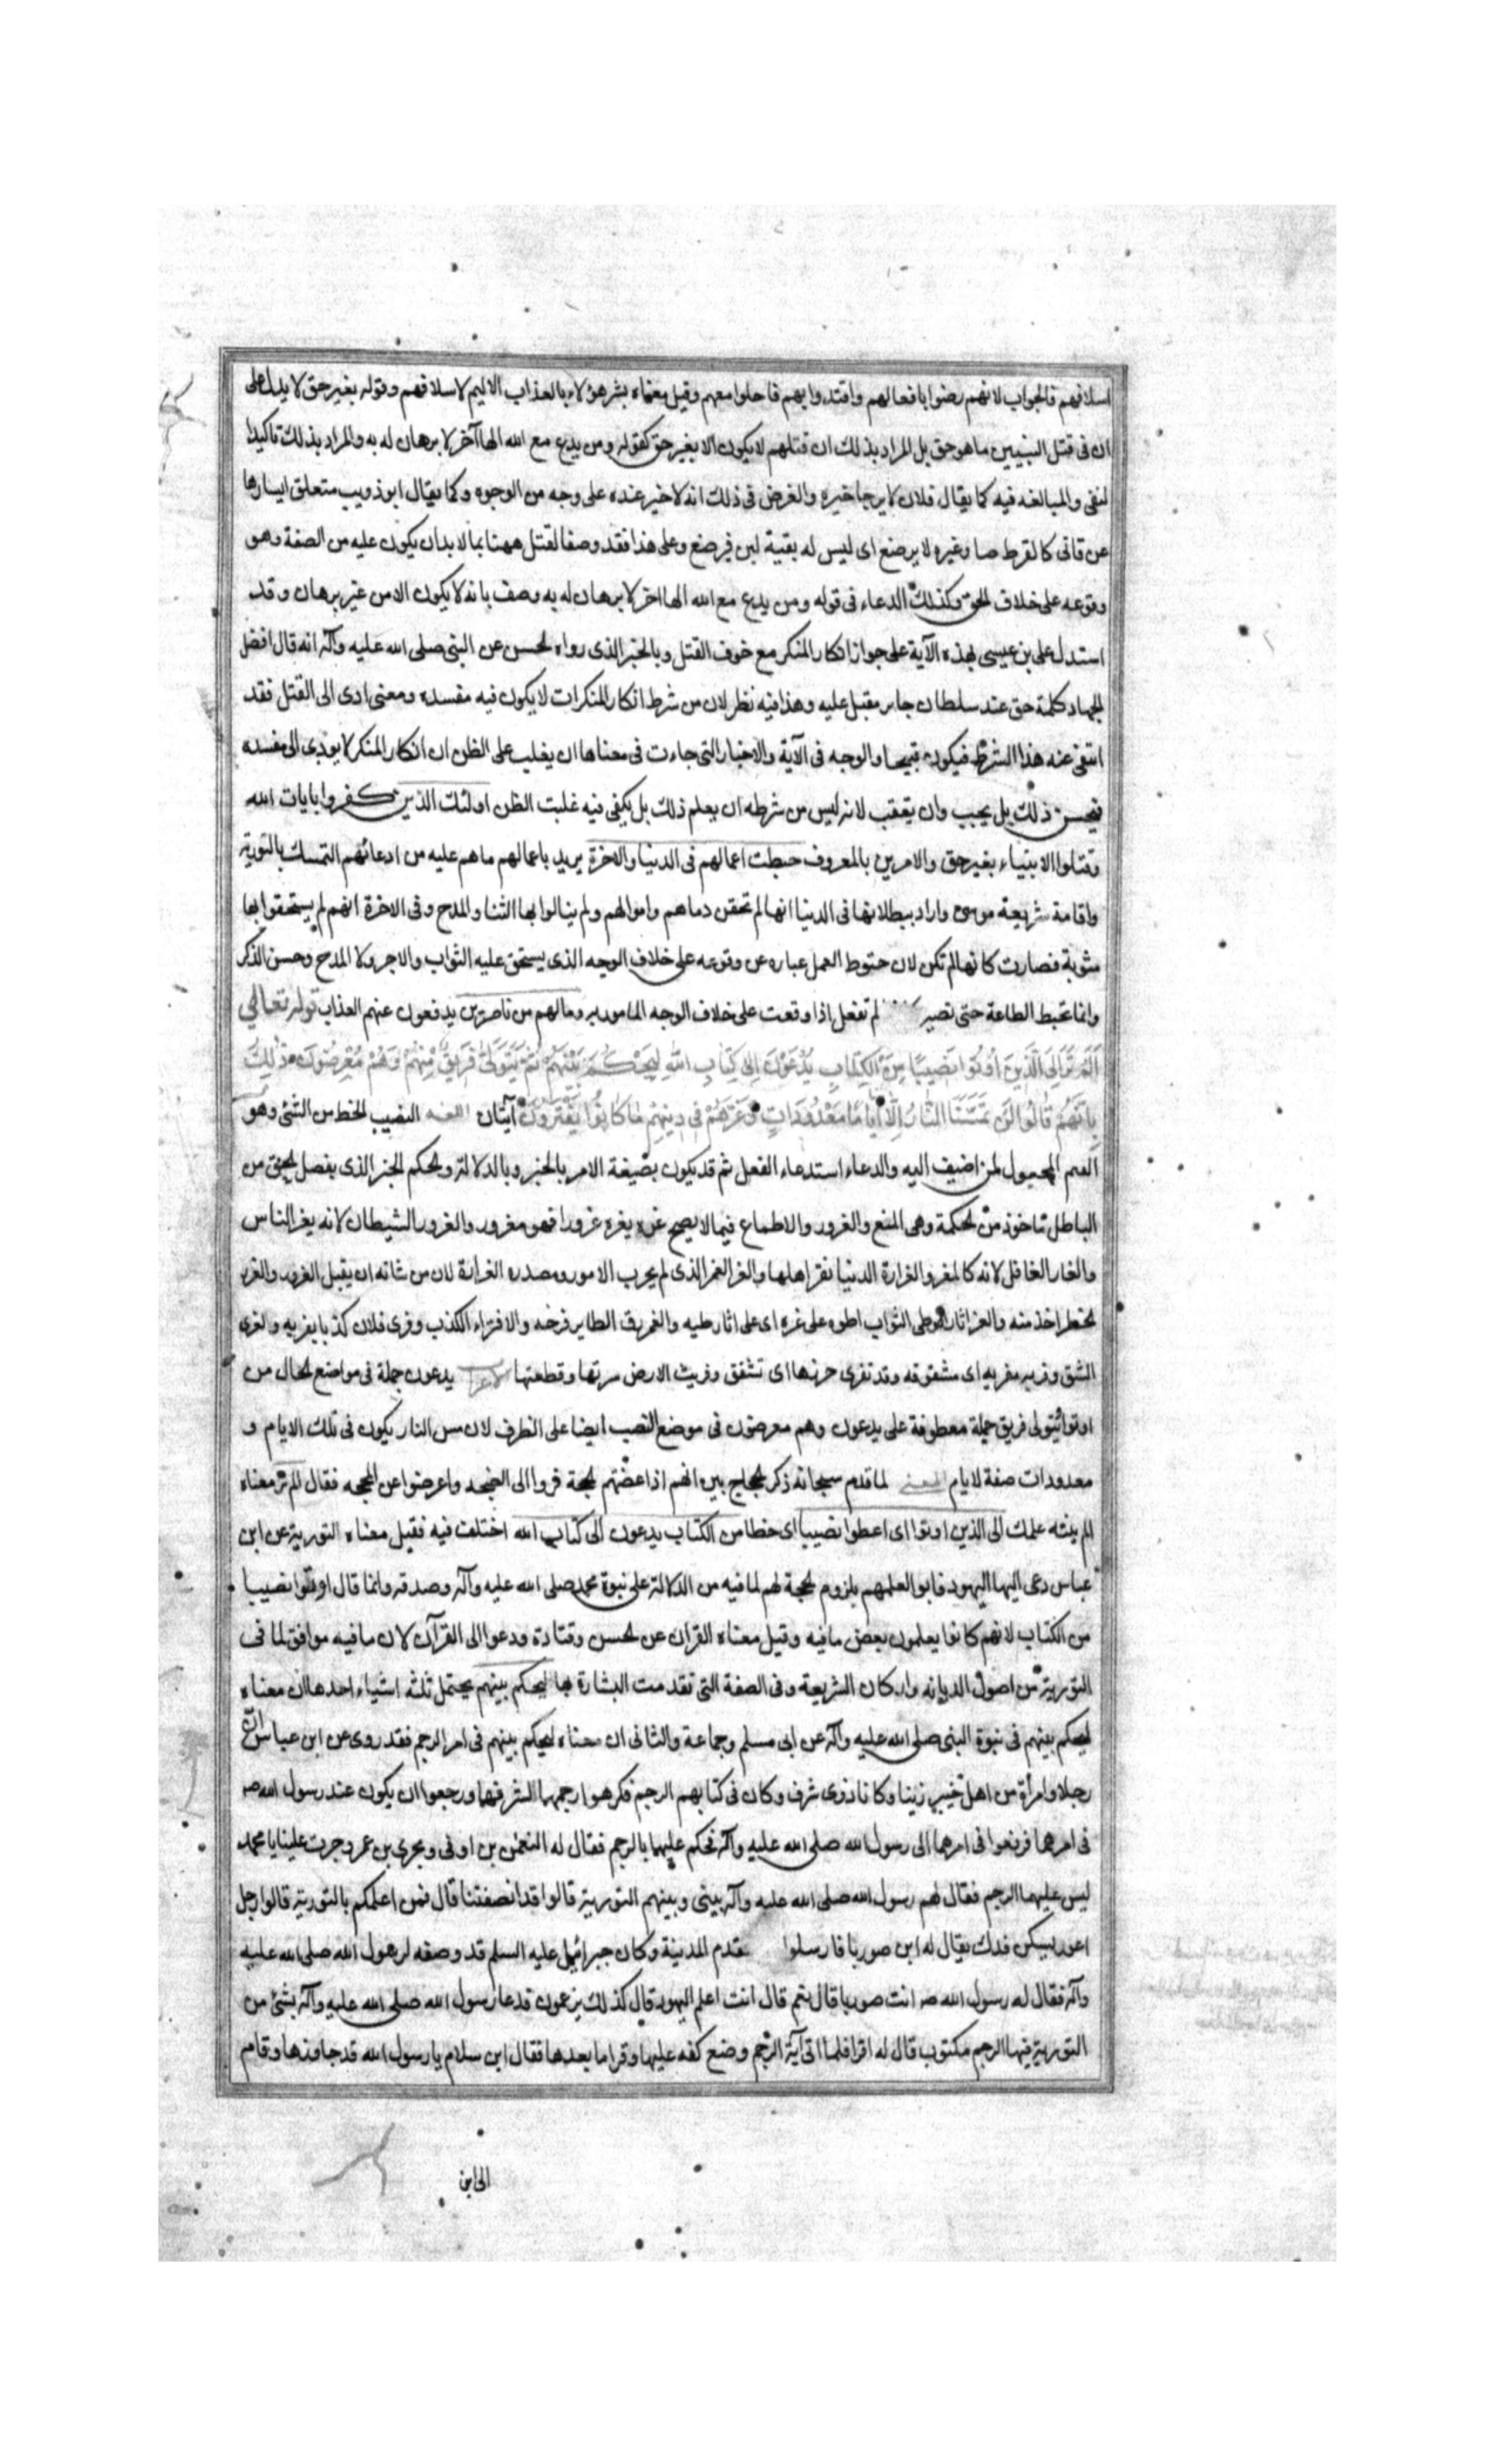 اسلافهم فالجواب لانهم رضوا بافعالهم واقتدوا بهم فاحلوا معهم وقيل معناه بشر هؤلاء بالعذاب الاليم لاسلافهم وقوله بغير حق لا يدل على
ان فى قتل النبيين ما هو حق بل المراد بذلك ان قتلهم لا يكون الا بغير حق كقوله ومن يدع مع الله الها آخر لا برهان له به والمراد بذلك تاكيد
لنفى والمبالغه فيه كما يقال فلان لا يرجا خيره والغرض فى ذلك انه لا خير عنده على وجه من الوجوه وكما يقال ابو ذويب متعلق
كالقرط لا يرضع اى ليس له بقية لبن فيرضع وعلى هذا فقد وصف القتل ههنا بما لا بد ان يكون عليه من الصفة وهو
وقوعه على خلاف الحق وكذلك الدعاء فى قوله ومن يدع مع الله الها اخر لا برهان له به وصف بانه لا يكون الا من غير برهان وقد
استدل على بن عيسى بهذه الآية على جواز انكار المنكر مع خوف القتل وبالخبر الذى رواه لحسن عن النبى صلى الله عليه وآله انه قال افضل
الجهاد كلمة حق عند سلطان جابر مقبل عليه وهذا فيه نظر لان من شرط انكار المنكرات لا يكون فيه مفسده ومعنى ادى الى القتل فقد
انتفى عنه هذا الشرط فيكون قبيحا والوجه فى الآية والاخبار التى جاءت فى معناها ان يغلب على الظن ان انكار المنكر لا يودى الى مفسده
فيحسن ذلك بل يجب وان يقعقب لانه ليس من شرطه ان يعلم ذلك بل يكفى فيه غلبت الظن اولئك الذين كفروا بايات الله
وقتلوا الانبياء بغير حق والامرين بالمعروف حبطت اعمالهم فى الدنيا والاخرة يريد باعمالهم ما هم عليه من ادعائهم التمسك بالتورية
واقامة شريعة موسى واراد ببطلانها فى الدنيا انها لم تحقن دماهم واموالهم ولم ينالوا بها الثنا والمدح وفى الاخرة انهم لم يستحقوا بها
مثوبة فصارت كانها لم تكن لان حبوط العمل عباره عن وقوعه على خلاف الوجه الذى يستحق عليه الثواب والاجر ولا المدح وحسن الذكر
وانما تحبط الطاعة حتى تصير لم تفعل اذا وقعت على خلاف الوجه المامور به وما لهم من ناصرين يدفعون عنهم العذاب قوله تعالى
اَلَمْ تَرَ اِلَى الَّذِينَ اُوتُوا نَصِيبًا مِنَ الْكِتَابِ يُدْعَوْنَ اِلَى كِتَابِ اللهِ لِيَحْكُمَ بَيْنَهُمْ ثُمَّ يَتَوَلَّى فَرِيقٌ مِنْهُمْ وَهُمْ مُعْرِضُونَ ذٰلِكَ
بِاَنَّهُمْ قَالُوا لَنْ تَمَسَّنَا النَّارُ اِلَّا اَيَّامًا مَعْدُودَاتٍ وَغَرَّهُمْ فِى دِينِهِمْ مَا كَانُوا يَفْتَرُونَ آيتان اللغه النصيب الحظ من الشئ وهو
القسم المجعول لمن اضيف اليه والدعاء استدعاء الفعل ثم قد يكون بصيغة الامر بالخبر وبالدلالة والحكم الخبر الذى يفصل الحق من
الباطل ماخوذ من لحكمة وهى المنع والغرور والاطماع فيما لا يصح غره يغره غرورا فهو مغرور والغرور الشيطان لانه يغر الناس
والغار الغافل لانه كالمغرو الغرارة الدنيا تغر اهلها والغر الغمر الذى لم يجرب الامور ومصدره الغرارة لان من شانه ان يقبل الغرور والغرر
الخطر اخذ منه والغر اثار طى الثواب اطوه على غره اى على اثار طيه والغر زق الطاير فرخه والافتراء الكذب وفرى فلان كذبا يفريه والفرى
الشق وفريه مفريه اى مشقوقه وقد تفرى خرزها اى تشقق وفريت الارض سرتها وقطعتها الاعراب يدعون جملة فى مواضع لحال من
اوتوا ثم يتولى فريق جملة معطوفة على يدعون وهم معرضون فى موضع النصب ايضا على الظرف لان مس النار يكون فى تلك الايام و
معدودات صفة لايام المعنى لما قدم سبحانه ذكر لحجاج بين انهم اذا عضتهم لحجة فروا الى الضجه واعرضوا عن المحجه فقال الم تر معناه
الم ينته علمك الى الذين اوتوا اى اعطوا نصيبا اى حظا من الكتاب يدعون الى كتاب الله اختلف فيه فقيل معناه التورية عن ابن
عباس دعى اليها اليهود فابوا لعلمهم بلزوم لحجة لهم لما فيه من الدلالة على نبوة محمد صلى الله عليه وآله وصدقه وانما قال اوتوا نصيبا
من الكتاب لانهم كانوا يعلمون بعض ما فيه وقيل معناه القران عن لحسن وقتادة ودعوا الى القرآن لان ما فيه موافق لما فى
التورية من اصول الديانه واركان الشريعة وفى الصفة التى تقدمت البشارة بها ليحكم بينهم يحتمل ثلثه اشياء احدها ان معناه
ليحكم بينهم فى نبوة النبى صلى الله عليه وآله عن ابى مسلم وجماعة والثانى ان معناه ليحكم بينهم فى امر الرجم فقد روى عن ابن عباس ان
رجلا وامرأة من اهل خيبر زنيا وكانا ذوى شرف وكان فى كتابهم الرجم فكرهوا رجمهما لشرفهما ورجعوا ان يكون عند رسول الله صـ
فى امرهما فرفعوا فى امرهما الى رسول الله صلى الله عليه وآله فحكم عليهما بالرجم فقال له النعمن بن اوفى وبحرى بن عمرو جرت علينا يا محمد
ليس عليهما الرجم فقال لهم رسول الله صلى الله عليه وآله بينى وبينهم التورية قالوا قد انصفتنا قال فمن اعلمكم بالتورية قالوا رجل
اعور يسكن فدك يقال له ابن صوريا فارسلوا فقدم المدينة وكان جبرائيل عليه السلم قد وصفه لرسول الله صلى الله عليه
وآله فقال له رسول الله صـ انت صوريا قال نعم قال انت اعلم اليهود قال كذلك يزعمون فدعا رسول الله صلى الله عليه وآله بشئ من
التورية فيها الرجم مكتوب قال له اقرا فلما اتى آية الرجم وضع كفه عليها وقرا ما بعدها فقال ابن سلام يا رسول الله قد جاوزها وقام
الى ابن